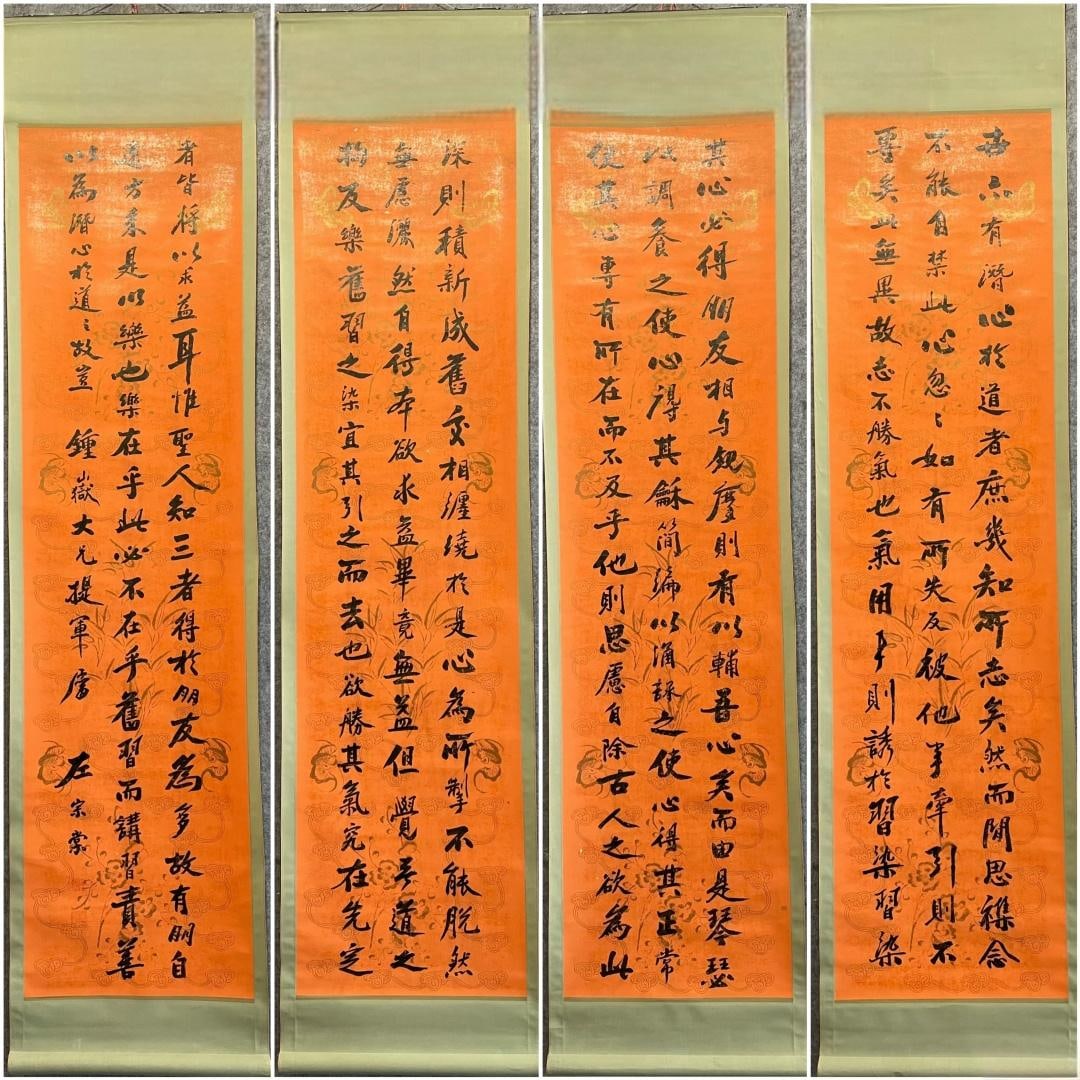 世亦有潛心於道者庶幾知所志矣然而閒思襍念
不能自禁此心忽〻如有所失反被他事牽引則不
善矣此無異故志不勝氣也氣用事則誘於習染習染
深則積新成舊交相纏繞於是心為所掣不能脫然
無慮灑然自得本欲求益畢竟無益但覺吾道之
拘反樂舊習之染宜其引之而去也欲勝其氣究在先定
其心必得朋友相与規磨則有以輔吾心矣而由是琴瑟
以調養之使心得其龢簡編以涵詠之使心得其正常
使其心專有所在而不及乎他則思慮自除古人之欲為此
者皆將以求益耳惟聖人知三者得於朋友為多故有朋自
遠方来是以樂也樂在乎此必不在乎舊習而講習責善
以為潛心於道〻故豈 鍾嶽大兄提軍屬 左宗棠